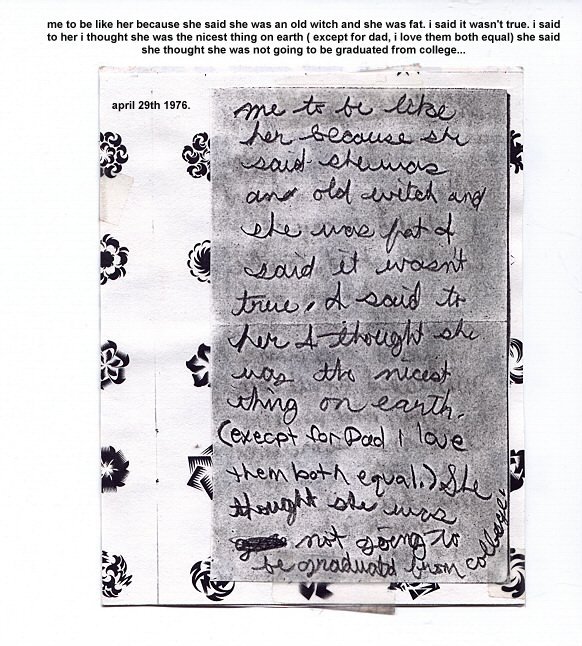 me to be like her because she said she was an old witch and she was fat. i said it wasn't true. i said
to her i thought she was the nicest thing on earth ( except for dad, i love them both equal) she said
she thought she was not going to be graduated from college...
april 29th 1976.
me to be like
her because she
said she was
an old witch and
she was fat I
said it wasn't
true, I said to
her I thought she
was the nicest
thing on earth.
(execpt for Dad i love
them both equal.) She
thought she was
not going to
be graduated from college.